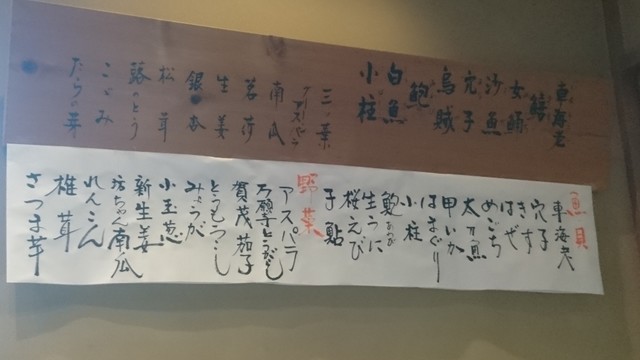 車海老
鱚
女鯒
沙魚
穴子
烏賊
鮑
白魚
小柱
三ツ葉
グリーンアスパラ
南瓜
茗荷
生姜
銀杏
松茸
蕗のとう
こごみ
たらの芽
魚貝
車海老
穴子
きす
はぜ
めごち
太刀魚
甲いか
はまぐり
小柱
鮑
生うに
桜えび
子鮎
野菜
アスパラ
万願寺とうがらし
賀茂茄子
とうもろこし
みょうが
小玉葱
新生姜
坊ちゃん南瓜
れんこん
椎茸
さつま芋